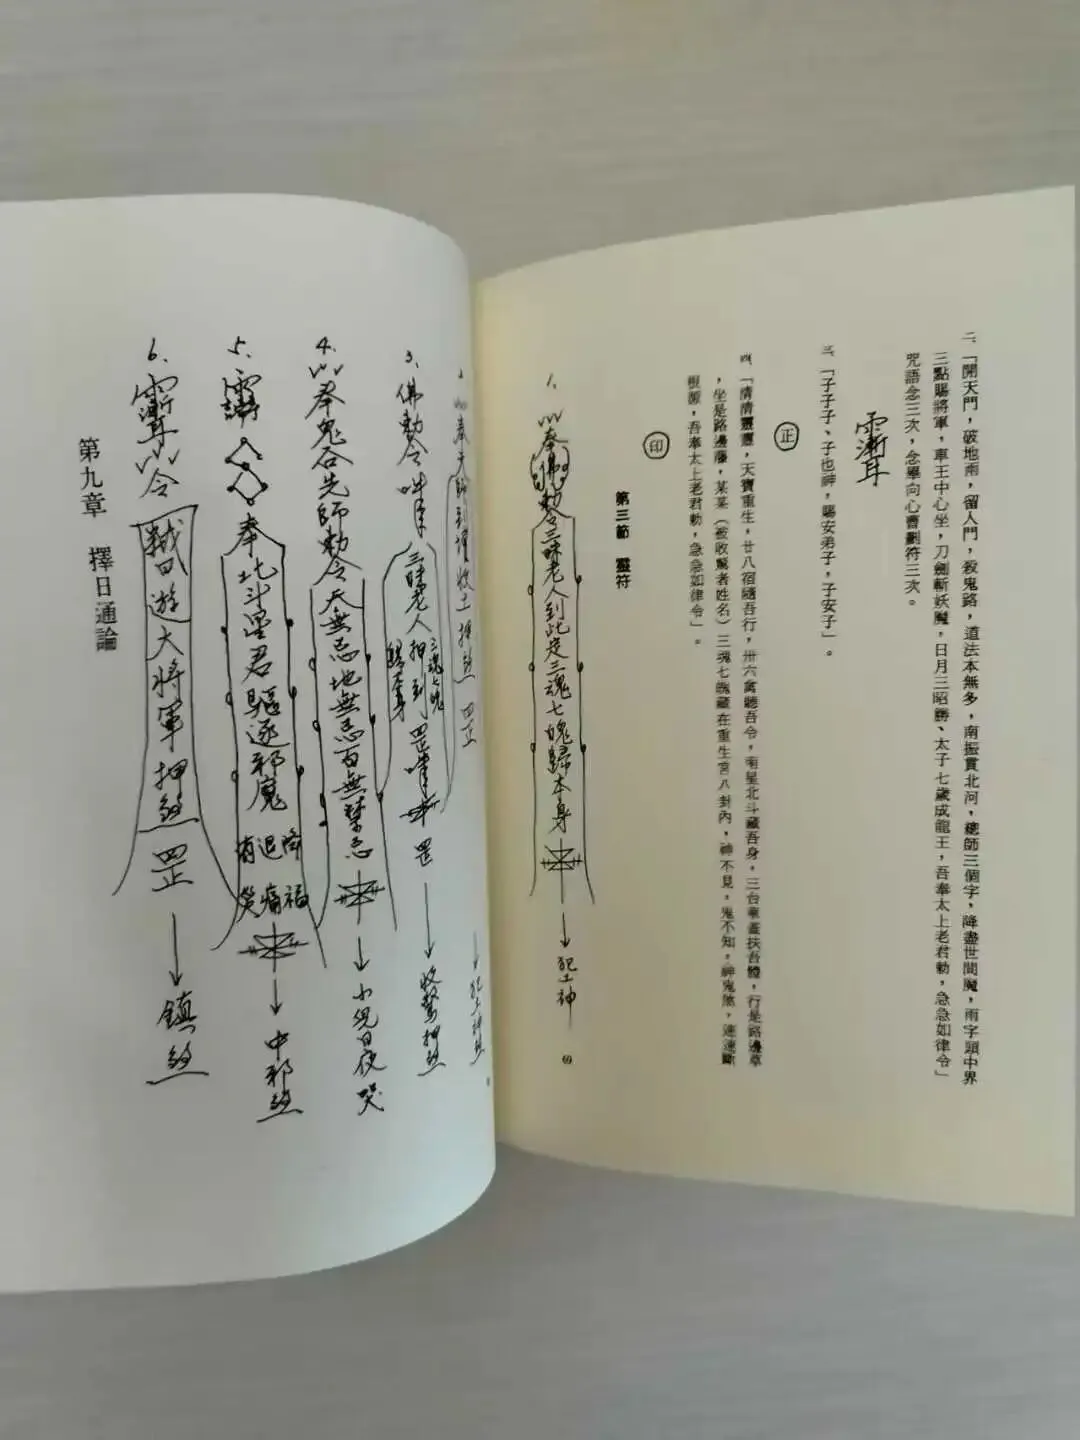 二、「開天門，破地雨，留人門，殺鬼路，道法本無多，南振貫北河，總師三個字，降盡世間魔，雨字頭中界
三點賜將軍，車王中心坐，刀劍斬妖魔，日月三昭勝、太子七歲成龍王，吾奉太上老君勅，急急如律令」
咒語念三次，念畢向心書劃符三次。
正
三、「子子子、子也神，賜安弟子，子安子」。
四、「清清靈靈，天寶重生，廿八宿隨吾行，卅六禽聽吾令，南星北斗藏吾身，三台華蓋扶吾體，行是路邊草
，坐是路邊藤，某某（被收驚者姓名）三魂七魄藏在重生宮八封內，神不見，鬼不知，神鬼煞，速速斷
根源，吾奉太上老君勅，急急如律令」。
印
第三節 靈符
1、奉佛勅令三昧老人到此定三魂七魄歸本身
犯土神
69
奉天師到壇收土押煞罡
犯土神煞
3、佛勅令 三昧老人押到罡
三魂七魄
歸本身
罡
收驚押煞
4、奉鬼谷先師勅令天無忌地無忌百無禁忌
小兒日夜哭
5、奉北斗星君驅逐邪魔
降福
退痛
中邪煞
6、令 日遊大將軍押煞罡
鎮煞
第九章 擇日通論